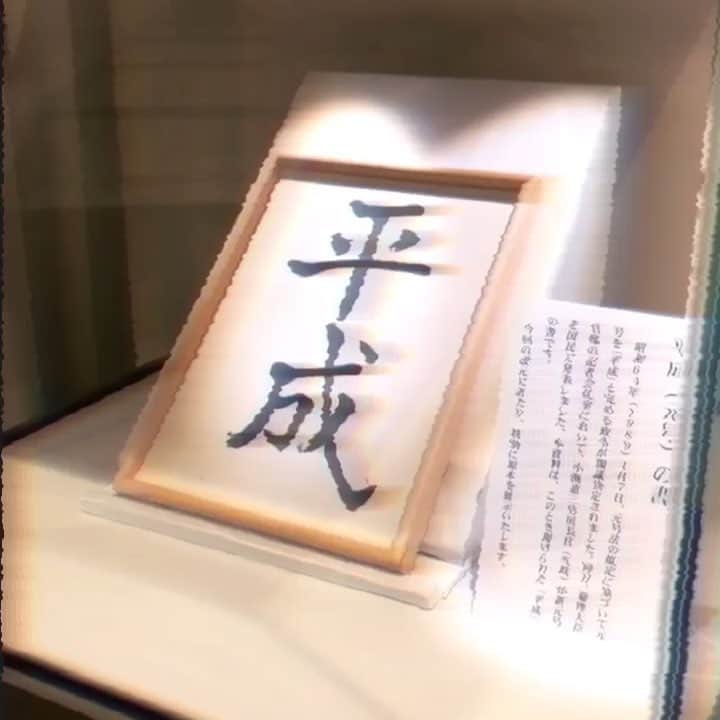 平成
「平成（元号）」の書
昭和64年（1989）1月7日、元号法の規定に基づいて元
号を「平成」と定める政令が閣議決定されました。同日、総理大臣
官邸の記者会見室において、小渕恵三官房長官（当時）が新元号
を国民に発表しました。本資料は、このとき掲げられた「平成」
の書です。
今回の改元にあたり、特別に原本を展示いたします。